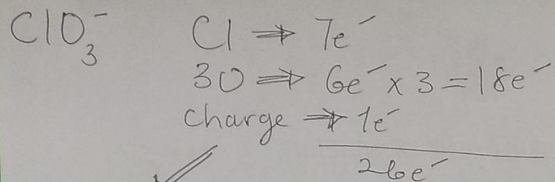 ClO₃⁻
Cl ⇒ 7e⁻
3O ⇒ 6e⁻ x 3 = 18e⁻
charge ⇒ 1e⁻
26e⁻